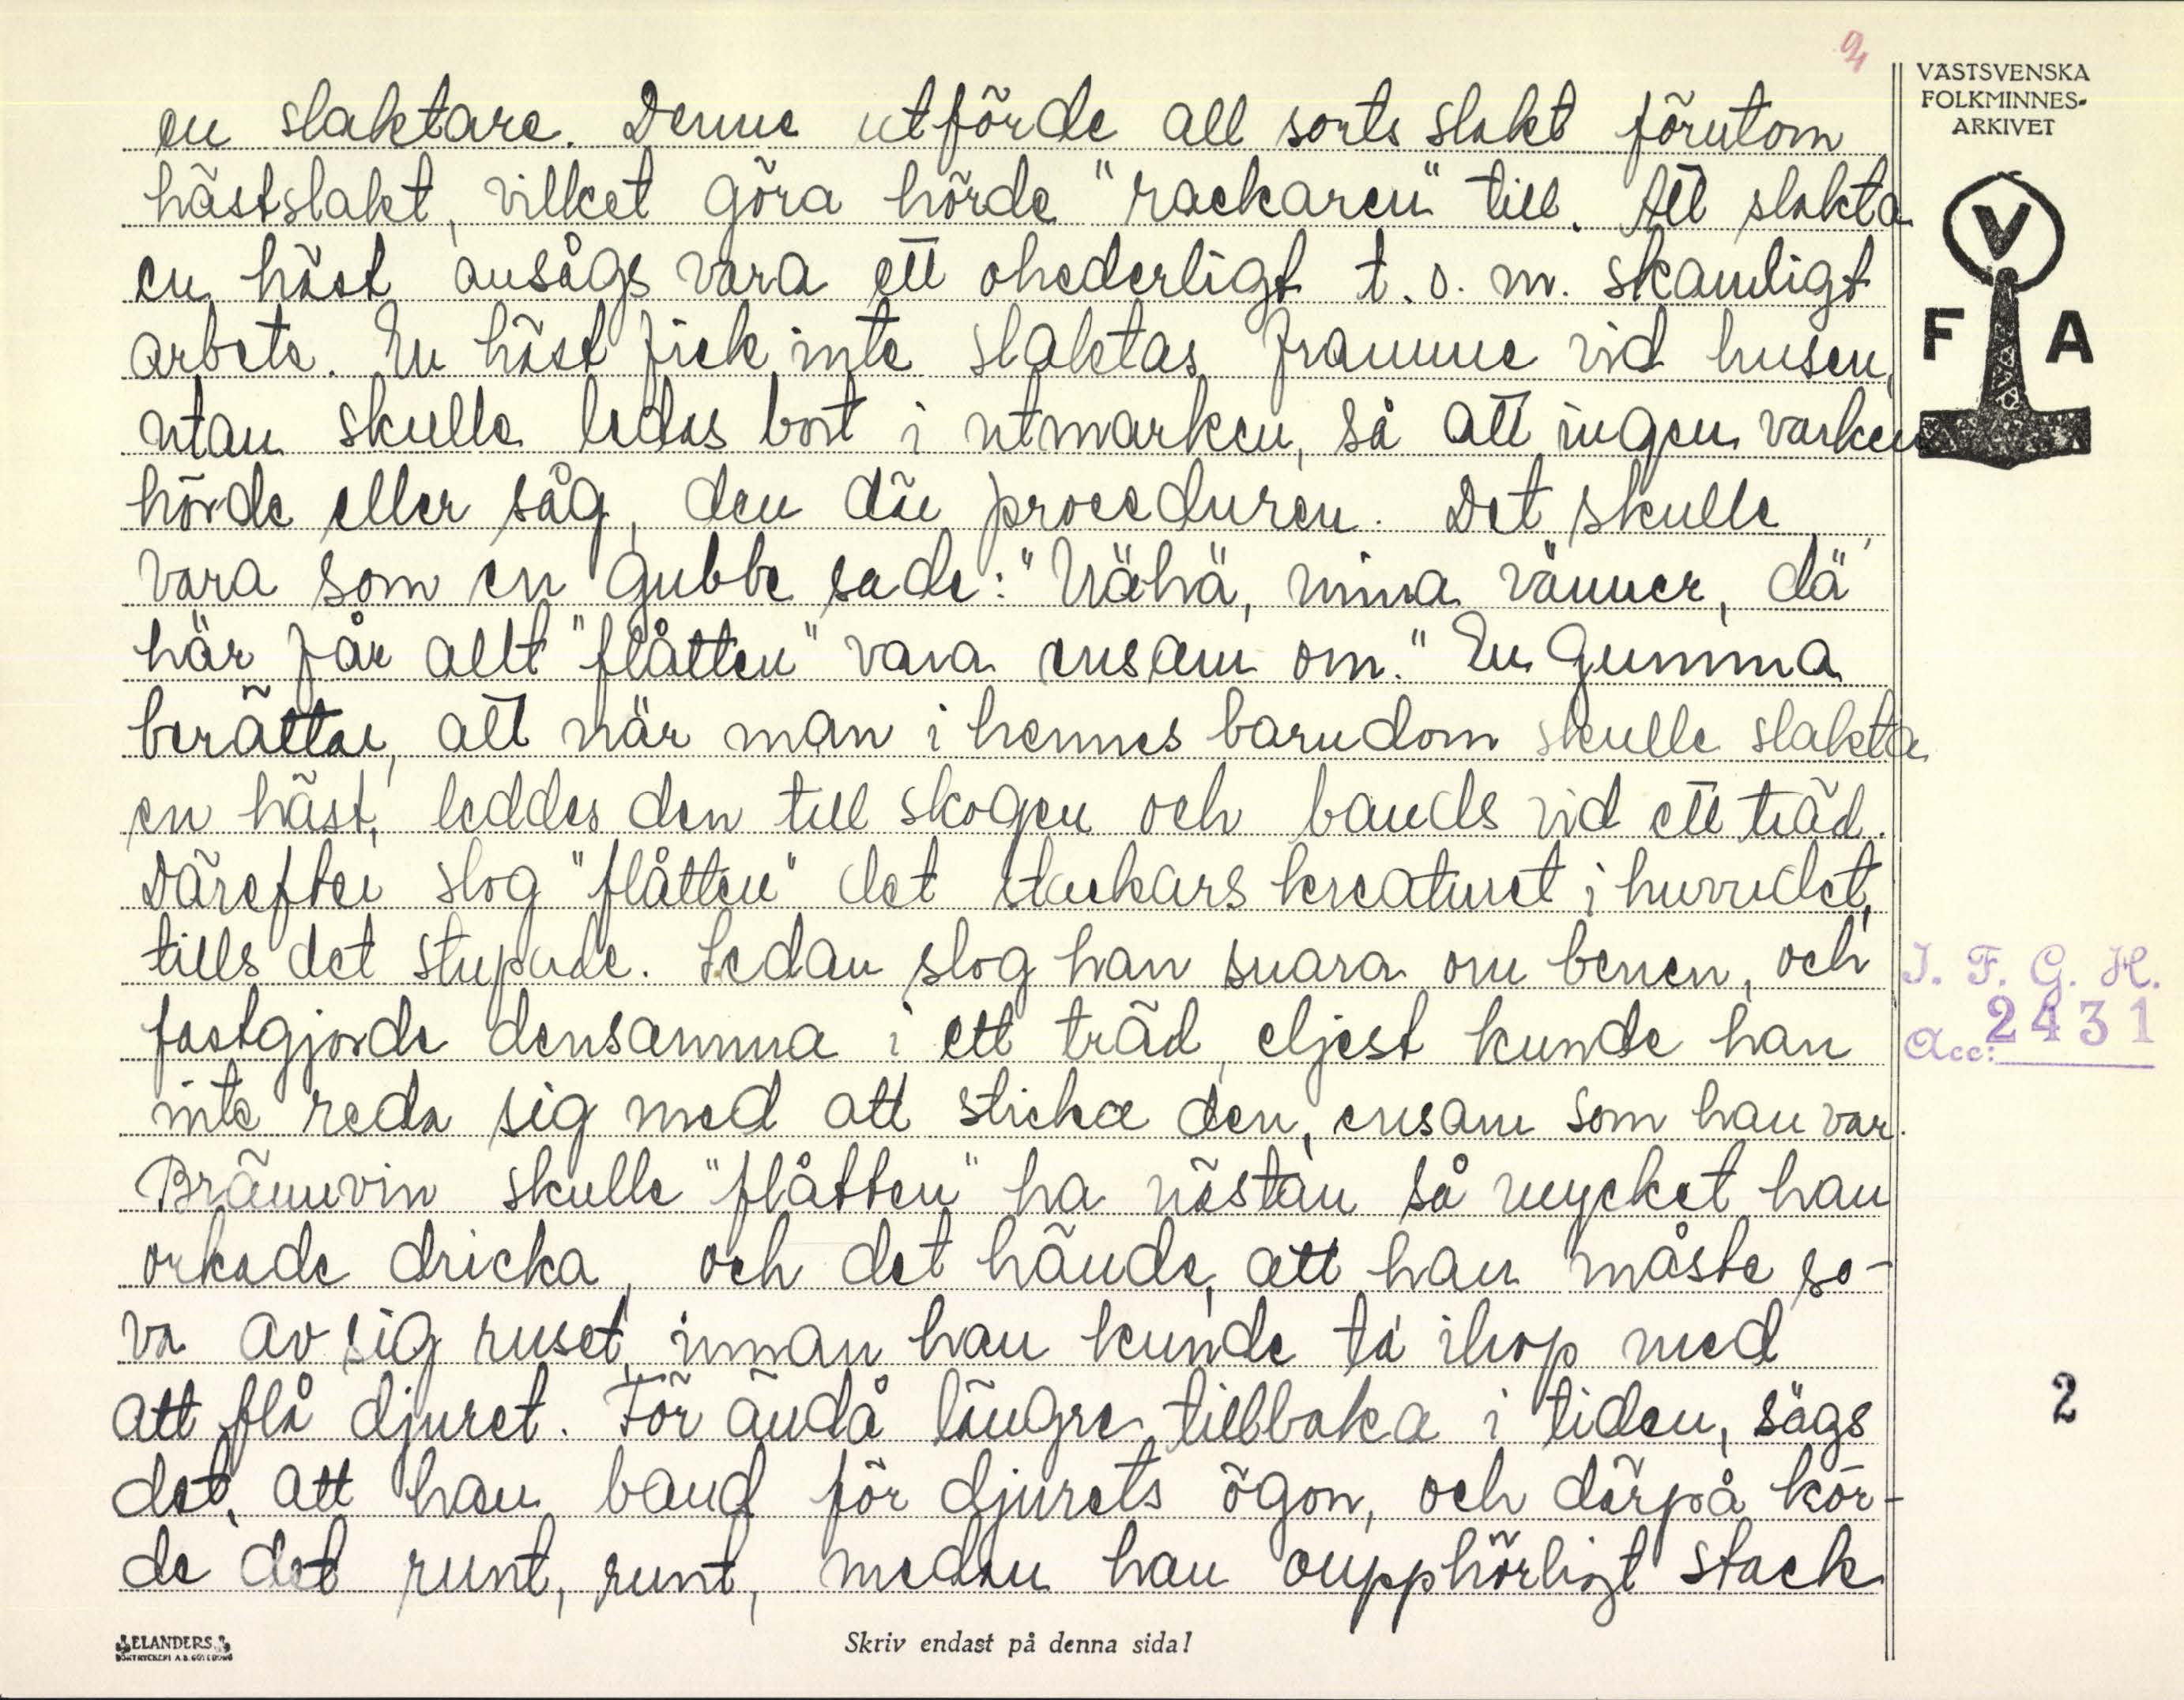 VÄSTSVENSKA
FOLKMINNES-
ARKIVET
V
F A
en slaktare. Denne utförde all sorts slakt förutom
hästslakt, vilket göra hörde "rackaren" till. Att slakta
en häst ansågs vara ett ohederligt t.o.m. skamligt
arbete. En häst fick inte slaktas framme vid husen,
utan skulle ledas bort i utmarken, så att ingen varken
hörde eller såg, den där proceduren. Det skulle
vara som en gubbe sade: "Nähä, mina vänner, dä
här får allt "flåtten" vara ensam om." En gumma
berättar, att när man i hennes barndom skulle slakta
en häst, leddes den till skogen och bands vid ett träd.
Därefter slog "flåtten" det stackars kreaturet i huvudet,
tills det stupade. Sedan slog han snara om benen, och
fastgjorde densamma i ett träd, eljest kunde han
inte reda sig med att sticka den, ensam som han var.
Brännvin skulle "flåtten" ha nästan så mycket han
orkade dricka, och det hände, att han måste so-
va av sig ruset, innan han kunde ta ihop med
att flå djuret. För ändå längre tillbaka i tiden, sägs
det, att han band för djurets ögon, och därpå kör-
de det runt, runt, medan han oupphörligt stack
I. F. G. H.
Acc: 2431
2
ELANDERS
BOKTRYCKERI A.B. GÖTEBORG
Skriv endast på denna sida!